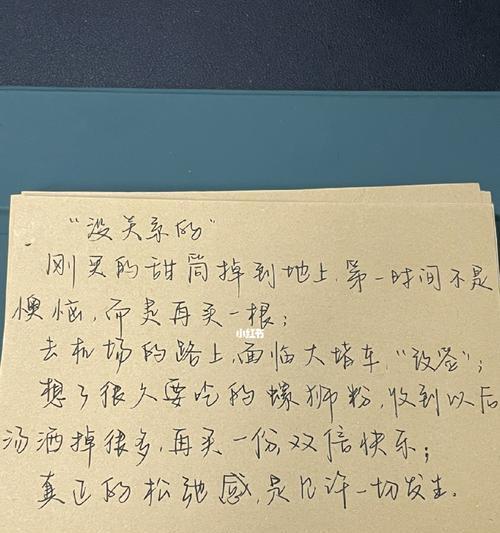 “没关系的”
刚买的甜筒掉到地上,第一时间不是
懊恼,而是再买一根;
小红书
去机场的路上,面临大堵车,“改签”;
想了很久要吃的螺狮粉,收到以后
汤洒掉很多,再买一份,双倍快乐;
真正的松弛感,是允许一切发生。